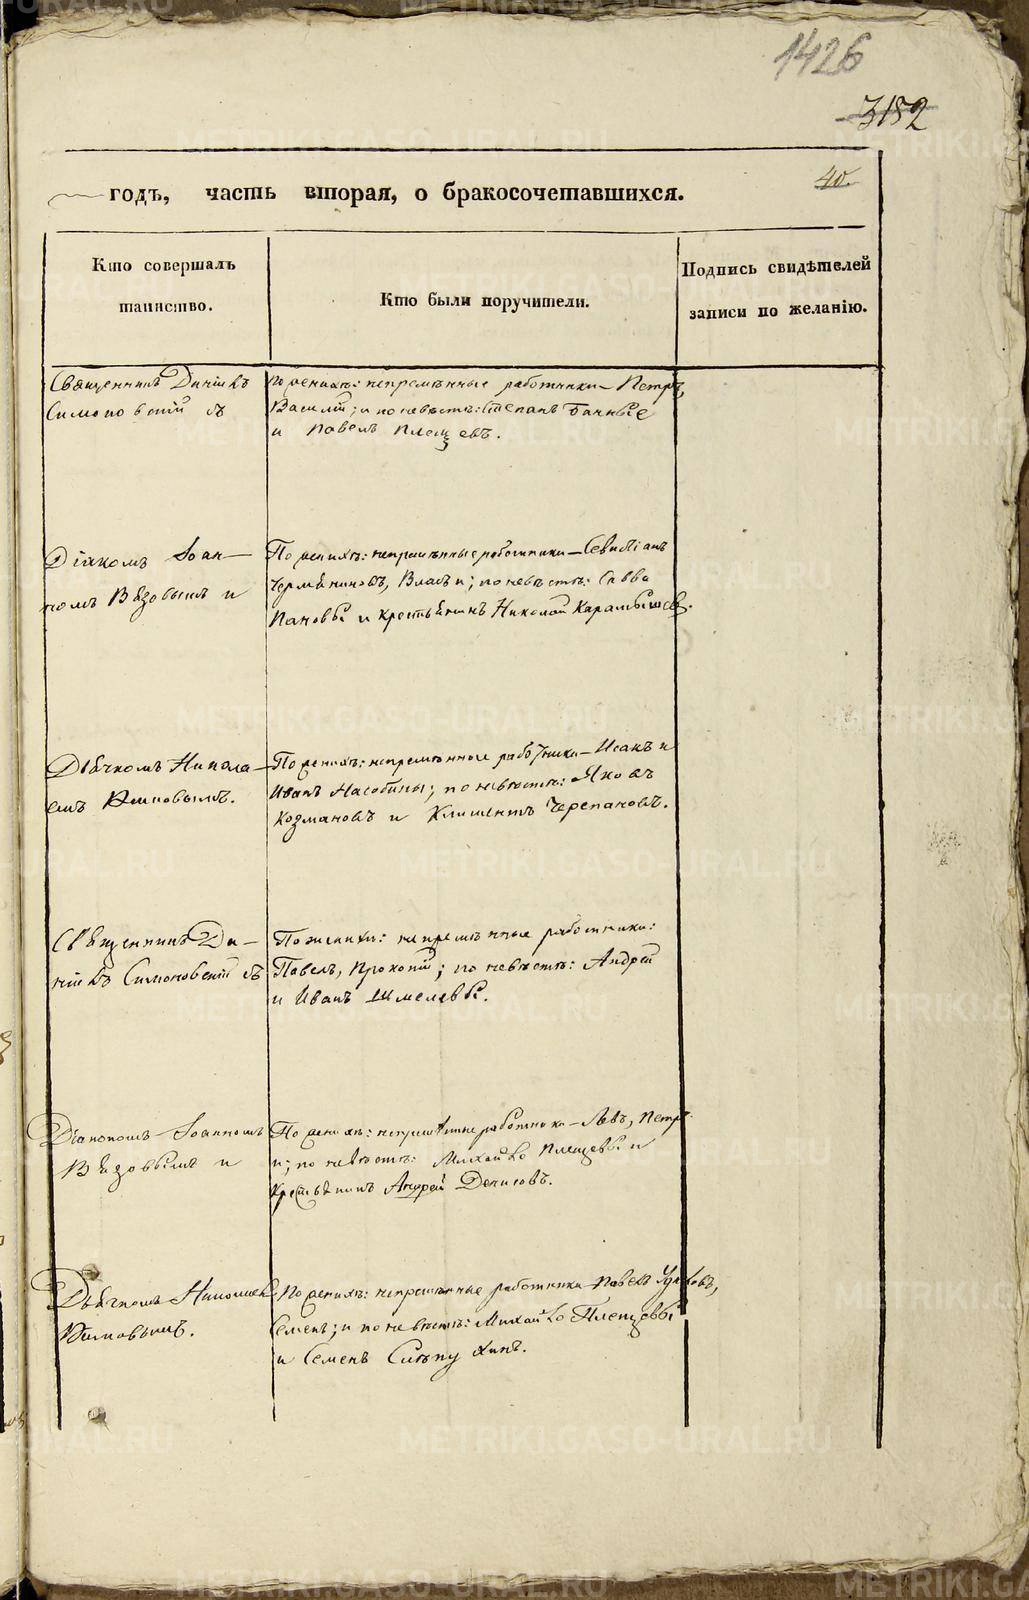 1426
3182
годъ, часть вторая, о бракосочетавшихся.
40.
Кто совершалъ
таинство.
Кто были поручители.
Подпись свидѣтелей
записи по желанію.
Священникъ
Симоновскій съ
По женихѣ: непремѣнные работники – Петръ,
Василій; и по невѣстѣ: Степанъ
и Павелъ Плещевъ.
Діакономъ Іоан–
номъ Вязовымъ и
По женихѣ: непремѣнные работники –
Власъ и; по невѣстѣ: Савва
Пановы и крестьянинъ Николай Карамышевъ.
Дьячкомъ Никола–
емъ
По женихѣ: непремѣнные работники – Исакъ и
Иванъ; по невѣстѣ: Яковъ
Козмановъ и Климентъ Черепановъ.
Священникъ Ди–
Симоновскій съ
По женихѣ: непремѣнные работники:
Павелъ, Прокопій; по невѣстѣ: Андрей
и Иванъ Шмелевы.
Діакономъ Іоанномъ
Вязовымъ и
По женихѣ: непремѣнные работники – Левъ, Петръ
и; по невѣстѣ: Михайло Плещевы и
Крестьянинъ Андрей Денисовъ.
Дьячкомъ Николаемъ
По женихѣ: непремѣнные работники – Павелъ
Семенъ; и по невѣстѣ: Михайло Плещевы
и Семенъ
METRIKI.GASO-URAL.RU